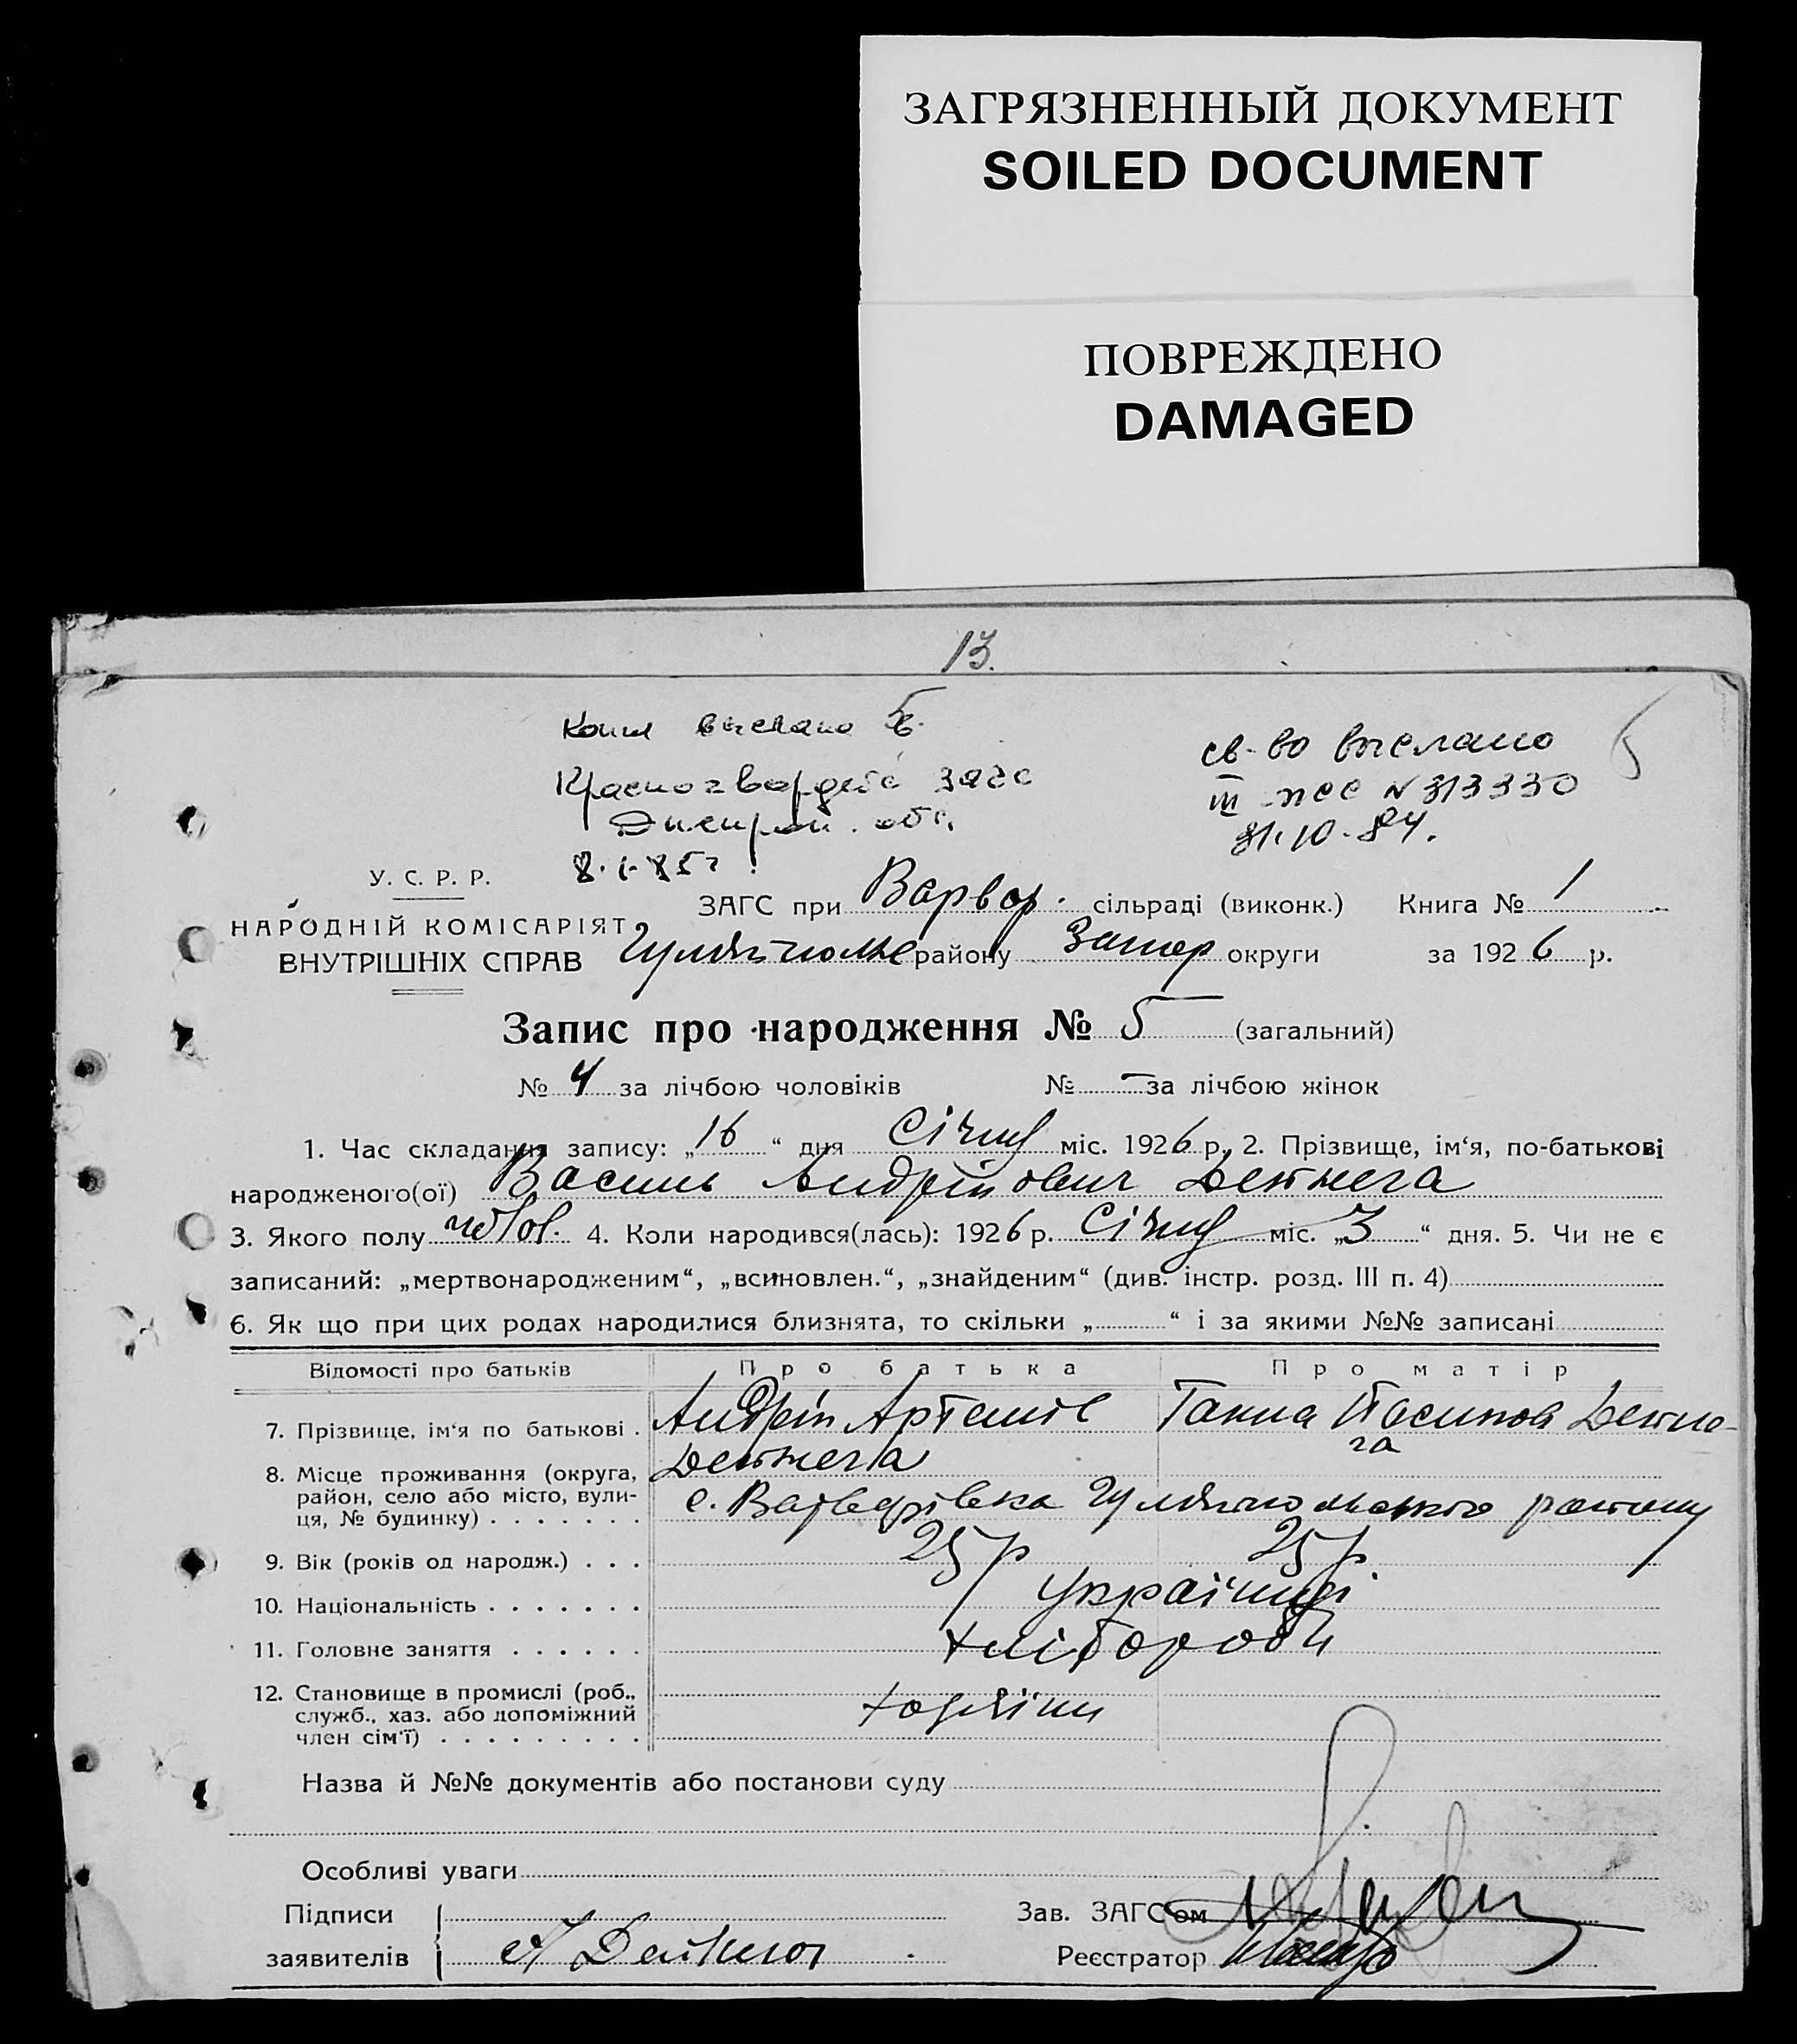 ЗАГРЯЗНЕННЫЙ ДОКУМЕНТ
SOILED DOCUMENT
ПОВРЕЖДЕНО
DAMAGED
13.
Копия выслано в
Красногвардейс загс
Днепроп. обл.
8.1.85г
св-во выслано
III ЖС № 313330
31.10.84.
5
У. С. Р. Р.
НАРОДНІЙ КОМІСАРІЯТ
ВНУТРІШНІХ СПРАВ
ЗАГС при Варвар. сільраді (виконк.) Книга № 1
Гуляйпольс району Запор округи за 1926 р.
Запис про народження № 5 (загальний)
№ 4 за лічбою чоловіків № — за лічбою жінок
1. Час складання запису: „16“ дня Січня міс. 1926 р, 2. Прізвище, ім‘я, по-батькові
народженого(ої) Василь Андрійович Дейнега
3. Якого полу чолов. 4. Коли народився(лась): 1926 р. Січня міс. „3“ дня. 5. Чи не є
записаний: „мертвонародженим“, „всиновлен.“, „знайденим“ (див. інстр. розд. III п. 4)
6. Як що при цих родах народилися близнята, то скільки „ “ і за якими №№ записані
Відомості про батьків Про батька Про матір
7. Прізвище, ім‘я по батькові . Андрій Артемів Ганна Дейне-
Дейнега га
8. Місце проживання (округа,
район, село або місто, вули-
ця, № будинку) . . . . . . . с. Варварівка Гуляйпольского району
9. Вік (років од народж.) . . . 25 р 25 р.
10. Національність . . . . . . . Українці
11. Головне заняття . . . . . . хлібороби
12. Становище в промислі (роб.,
служб., хаз. або допоміжний
член сім‘ї) . . . . . . . . . хазяіни
Назва й №№ документів або постанови суду
Особливі уваги
Підписи
заявителів А Дейнега
Зав. ЗАГС‘ом
Реєстратор